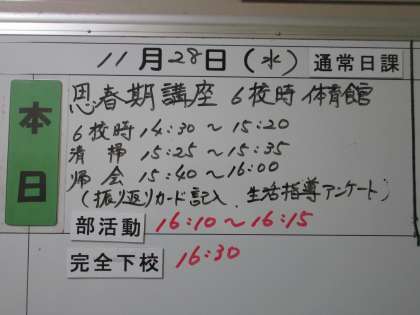 11月28日(水) 通常日課
本日
思春期講座 6校時 体育館
6校時 14:30～15:20
清掃 15:25～15:35
帰会 15:40～16:00
(振り返りカード記入、生活指導アンケート)
部活動 16:10～16:15
完全下校 16:30